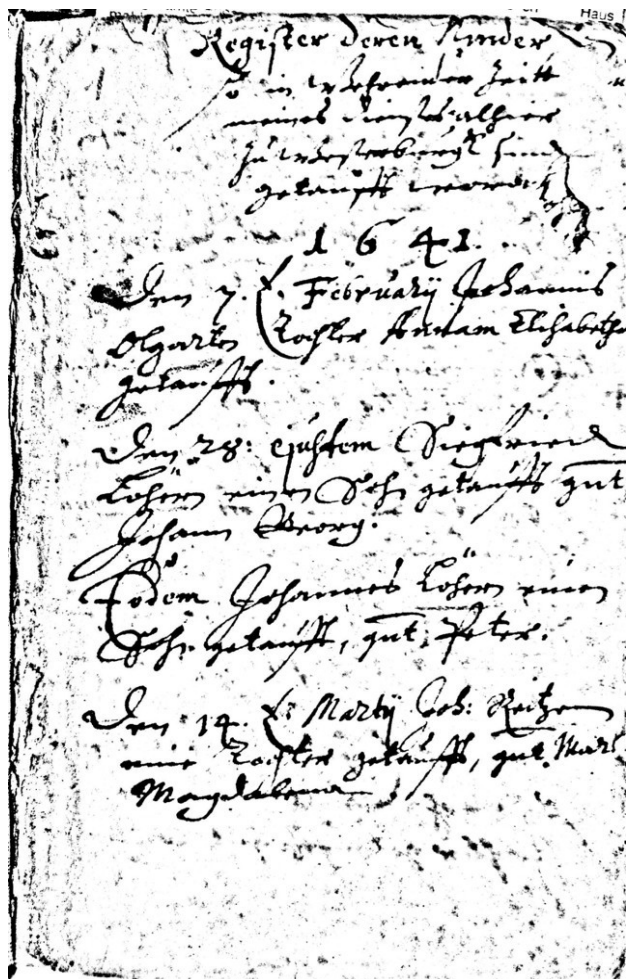 Haus
Register deren Kinder
so in wehrender Zeitt
meines diensts alhier
zu Westerburgk sind
getaufft worden
1641.
Den 7. t. February Johannis
Olgarten Tochter Annam Elisabetha
getaufft.
Den 28: ejusdem Siegfried
Löhern einen Sohn getaufft gnt.
Johann Georg.
Eodem Johannes Löhern einen
Sohn getaufft, gnt. Peter.
Den 14. t. Martij Joh: Reitzen
eine Tochter getaufft, gnt. Mari
Magdalena